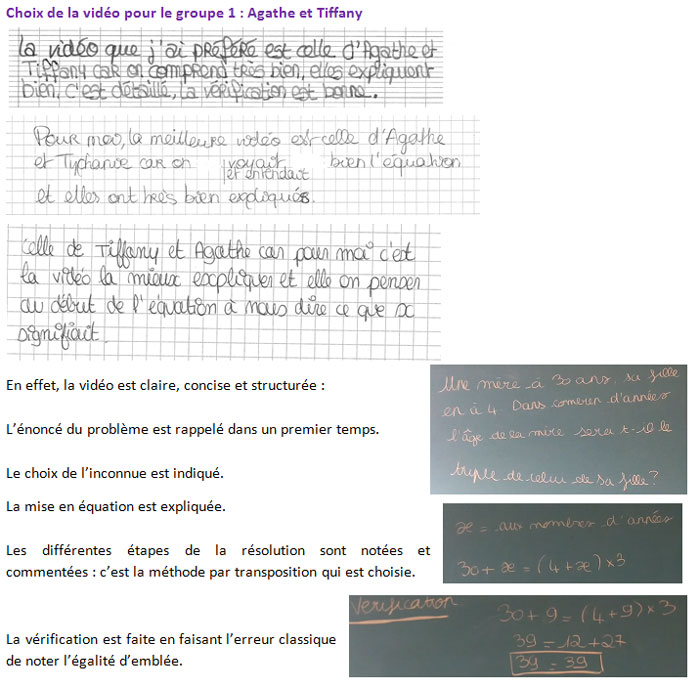 Choix de la vidéo pour le groupe 1 : Agathe et Tiffany
la vidéo que j'ai préféré est celle d'Agathe et
Tiffany car on comprend très bien, elles expliquent
bien, c'est détaillé, la vérification est bonne.
Pour moi, la meilleure vidéo est celle d'Agathe
et Typhanie car on voyait bien l'équation
et entendait
et elles ont très bien expliqués.
Celle de Tiffany et Agathe car pour moi c'est
la vidéo la mieux expliquer et elle on penser
au début de l'équation à nous dire ce que x
signifiait.
En effet, la vidéo est claire, concise et structurée :
Une mère à 30 ans, sa fille
en à 4 Dans combien d'années
l'âge de la mère sera t-il le
triple de celui de sa fille ?
L'énoncé du problème est rappelé dans un premier temps.
Le choix de l'inconnue est indiqué.
La mise en équation est expliquée.
x = aux nombres d'années
30 + x = (4 + x) × 3
Les différentes étapes de la résolution sont notées et
commentées : c'est la méthode par transposition qui est choisie.
Verification
30 + 9 = (4 + 9) × 3
39 = 12 + 27
39 = 39
La vérification est faite en faisant l'erreur classique
de noter l'égalité d'emblée.